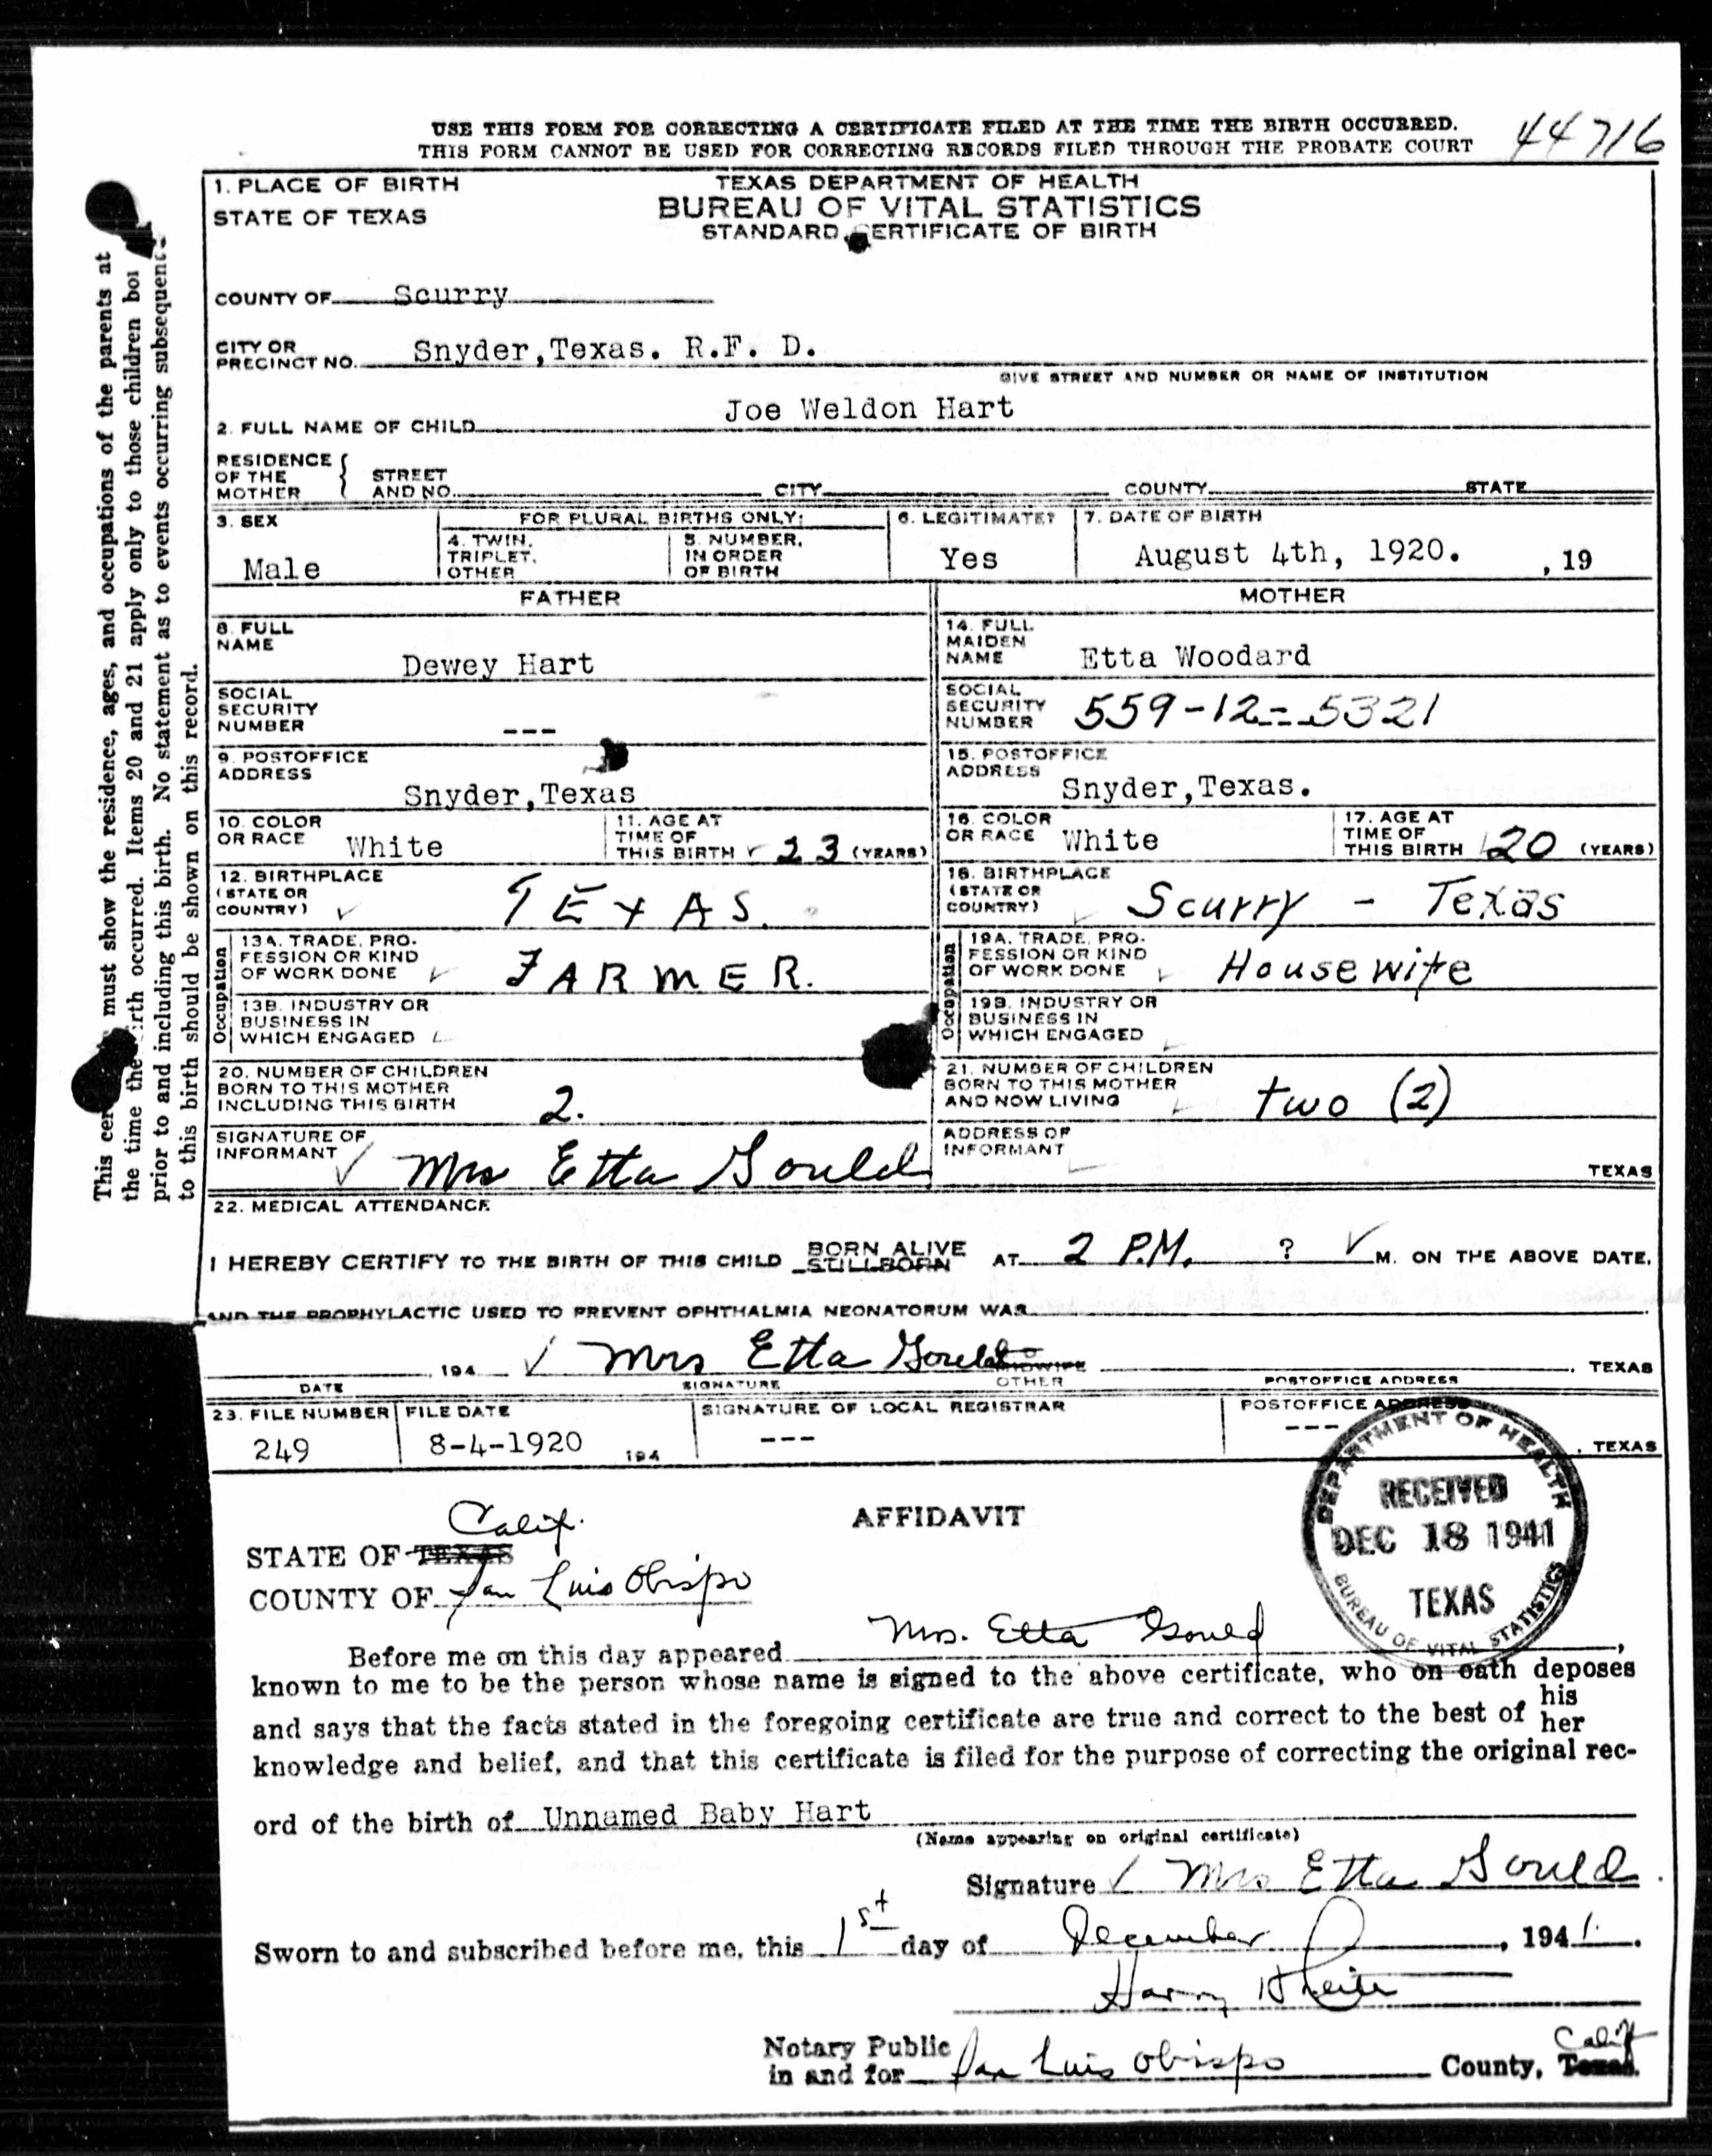 USE THIS FORM FOR CORRECTING A CERTIFICATE FILED AT THE TIME THE BIRTH OCCURRED.
THIS FORM CANNOT BE USED FOR CORRECTING RECORDS FILED THROUGH THE PROBATE COURT
44716
1. PLACE OF BIRTH
STATE OF TEXAS
TEXAS DEPARTMENT OF HEALTH
BUREAU OF VITAL STATISTICS
STANDARD CERTIFICATE OF BIRTH
COUNTY OF Scurry
CITY OR PRECINCT NO. Snyder, Texas. R.F. D.
GIVE STREET AND NUMBER OR NAME OF INSTITUTION
2. FULL NAME OF CHILD Joe Weldon Hart
RESIDENCE OF THE MOTHER { STREET AND NO. CITY COUNTY STATE
3. SEX Male
FOR PLURAL BIRTHS ONLY:
4. TWIN, TRIPLET, OTHER
5. NUMBER, IN ORDER OF BIRTH
6. LEGITIMATE? Yes
7. DATE OF BIRTH August 4th, 1920. , 19
FATHER
8. FULL NAME Dewey Hart
SOCIAL SECURITY NUMBER ---
9. POSTOFFICE ADDRESS Snyder, Texas
10. COLOR OR RACE White
11. AGE AT TIME OF THIS BIRTH ✓ 23 (YEARS)
12. BIRTHPLACE (STATE OR COUNTRY) ✓ TEXAS.
Occupation
13A. TRADE, PROFESSION OR KIND OF WORK DONE ✓ FARMER.
13B. INDUSTRY OR BUSINESS IN WHICH ENGAGED
MOTHER
14. FULL MAIDEN NAME Etta Woodard
SOCIAL SECURITY NUMBER 559-12-5321
15. POSTOFFICE ADDRESS Snyder, Texas.
16. COLOR OR RACE White
17. AGE AT TIME OF THIS BIRTH 20 (YEARS)
18. BIRTHPLACE (STATE OR COUNTRY) ✓ Scurry - Texas
Occupation
19A. TRADE, PROFESSION OR KIND OF WORK DONE ✓ Housewife
19B. INDUSTRY OR BUSINESS IN WHICH ENGAGED
20. NUMBER OF CHILDREN BORN TO THIS MOTHER INCLUDING THIS BIRTH 2.
21. NUMBER OF CHILDREN BORN TO THIS MOTHER AND NOW LIVING two (2)
SIGNATURE OF INFORMANT ✓ Mrs Etta Gould
ADDRESS OF INFORMANT TEXAS
22. MEDICAL ATTENDANCE
I HEREBY CERTIFY TO THE BIRTH OF THIS CHILD BORN ALIVE STILLBORN AT 2 P.M. ? ✓ M. ON THE ABOVE DATE,
AND THE PROPHYLACTIC USED TO PREVENT OPHTHALMIA NEONATORUM WAS
, 194 ✓ Mrs Etta Gould , TEXAS
DATE SIGNATURE OTHER POSTOFFICE ADDRESS
23. FILE NUMBER 249
FILE DATE 8-4-1920 194
SIGNATURE OF LOCAL REGISTRAR ---
POSTOFFICE ADDRESS --- , TEXAS
DEPARTMENT OF HEALTH
RECEIVED
DEC 18 1941
TEXAS
BUREAU OF VITAL STATISTICS
AFFIDAVIT
STATE OF TEXAS Calif.
COUNTY OF San Luis Obispo
Before me on this day appeared Mrs. Etta Gould ,
known to me to be the person whose name is signed to the above certificate, who on oath deposes
and says that the facts stated in the foregoing certificate are true and correct to the best of his her
knowledge and belief, and that this certificate is filed for the purpose of correcting the original rec-
ord of the birth of Unnamed Baby Hart
(Name appearing on original certificate)
Signature ✓ Mrs Etta Gould
Sworn to and subscribed before me, this 1st day of December , 1941.
Harry
Notary Public
in and for San Luis Obispo County, Texas. Calif
This must show the residence, ages, and occupations of the parents at
the time the birth occurred. Items 20 and 21 apply only to those children
prior to and including this birth. No statement as to events occurring
to this birth should be shown on this record.